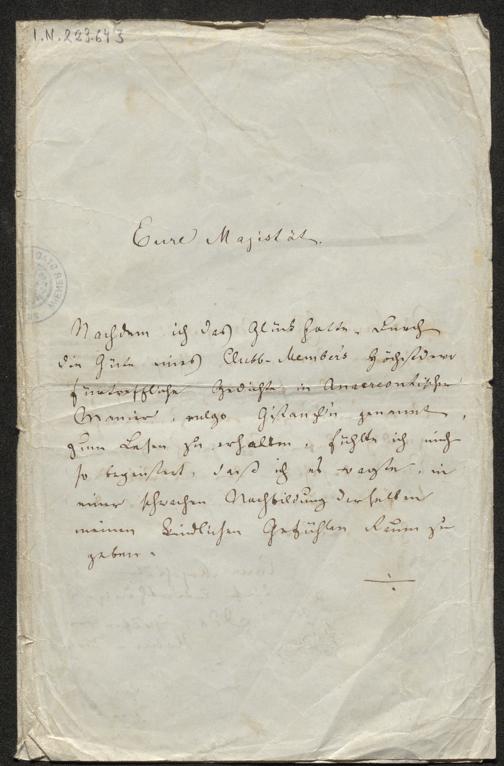 I.N. 223.643
Eure Majestät.
Nachdem ich das Glück hatte, durch
die Güte eines Clubb-Member's Höchstdero
fürtreffliche Gedichte in Anacreontischer
Manier, vulgo genannt,
zum Lesen zu erhalten, fühlte ich mich
so begeistert, daß ich es wagte, in
einer schwachen Nachbildung derselben
meinen kindlichen Gefühlen Raum zu
geben.